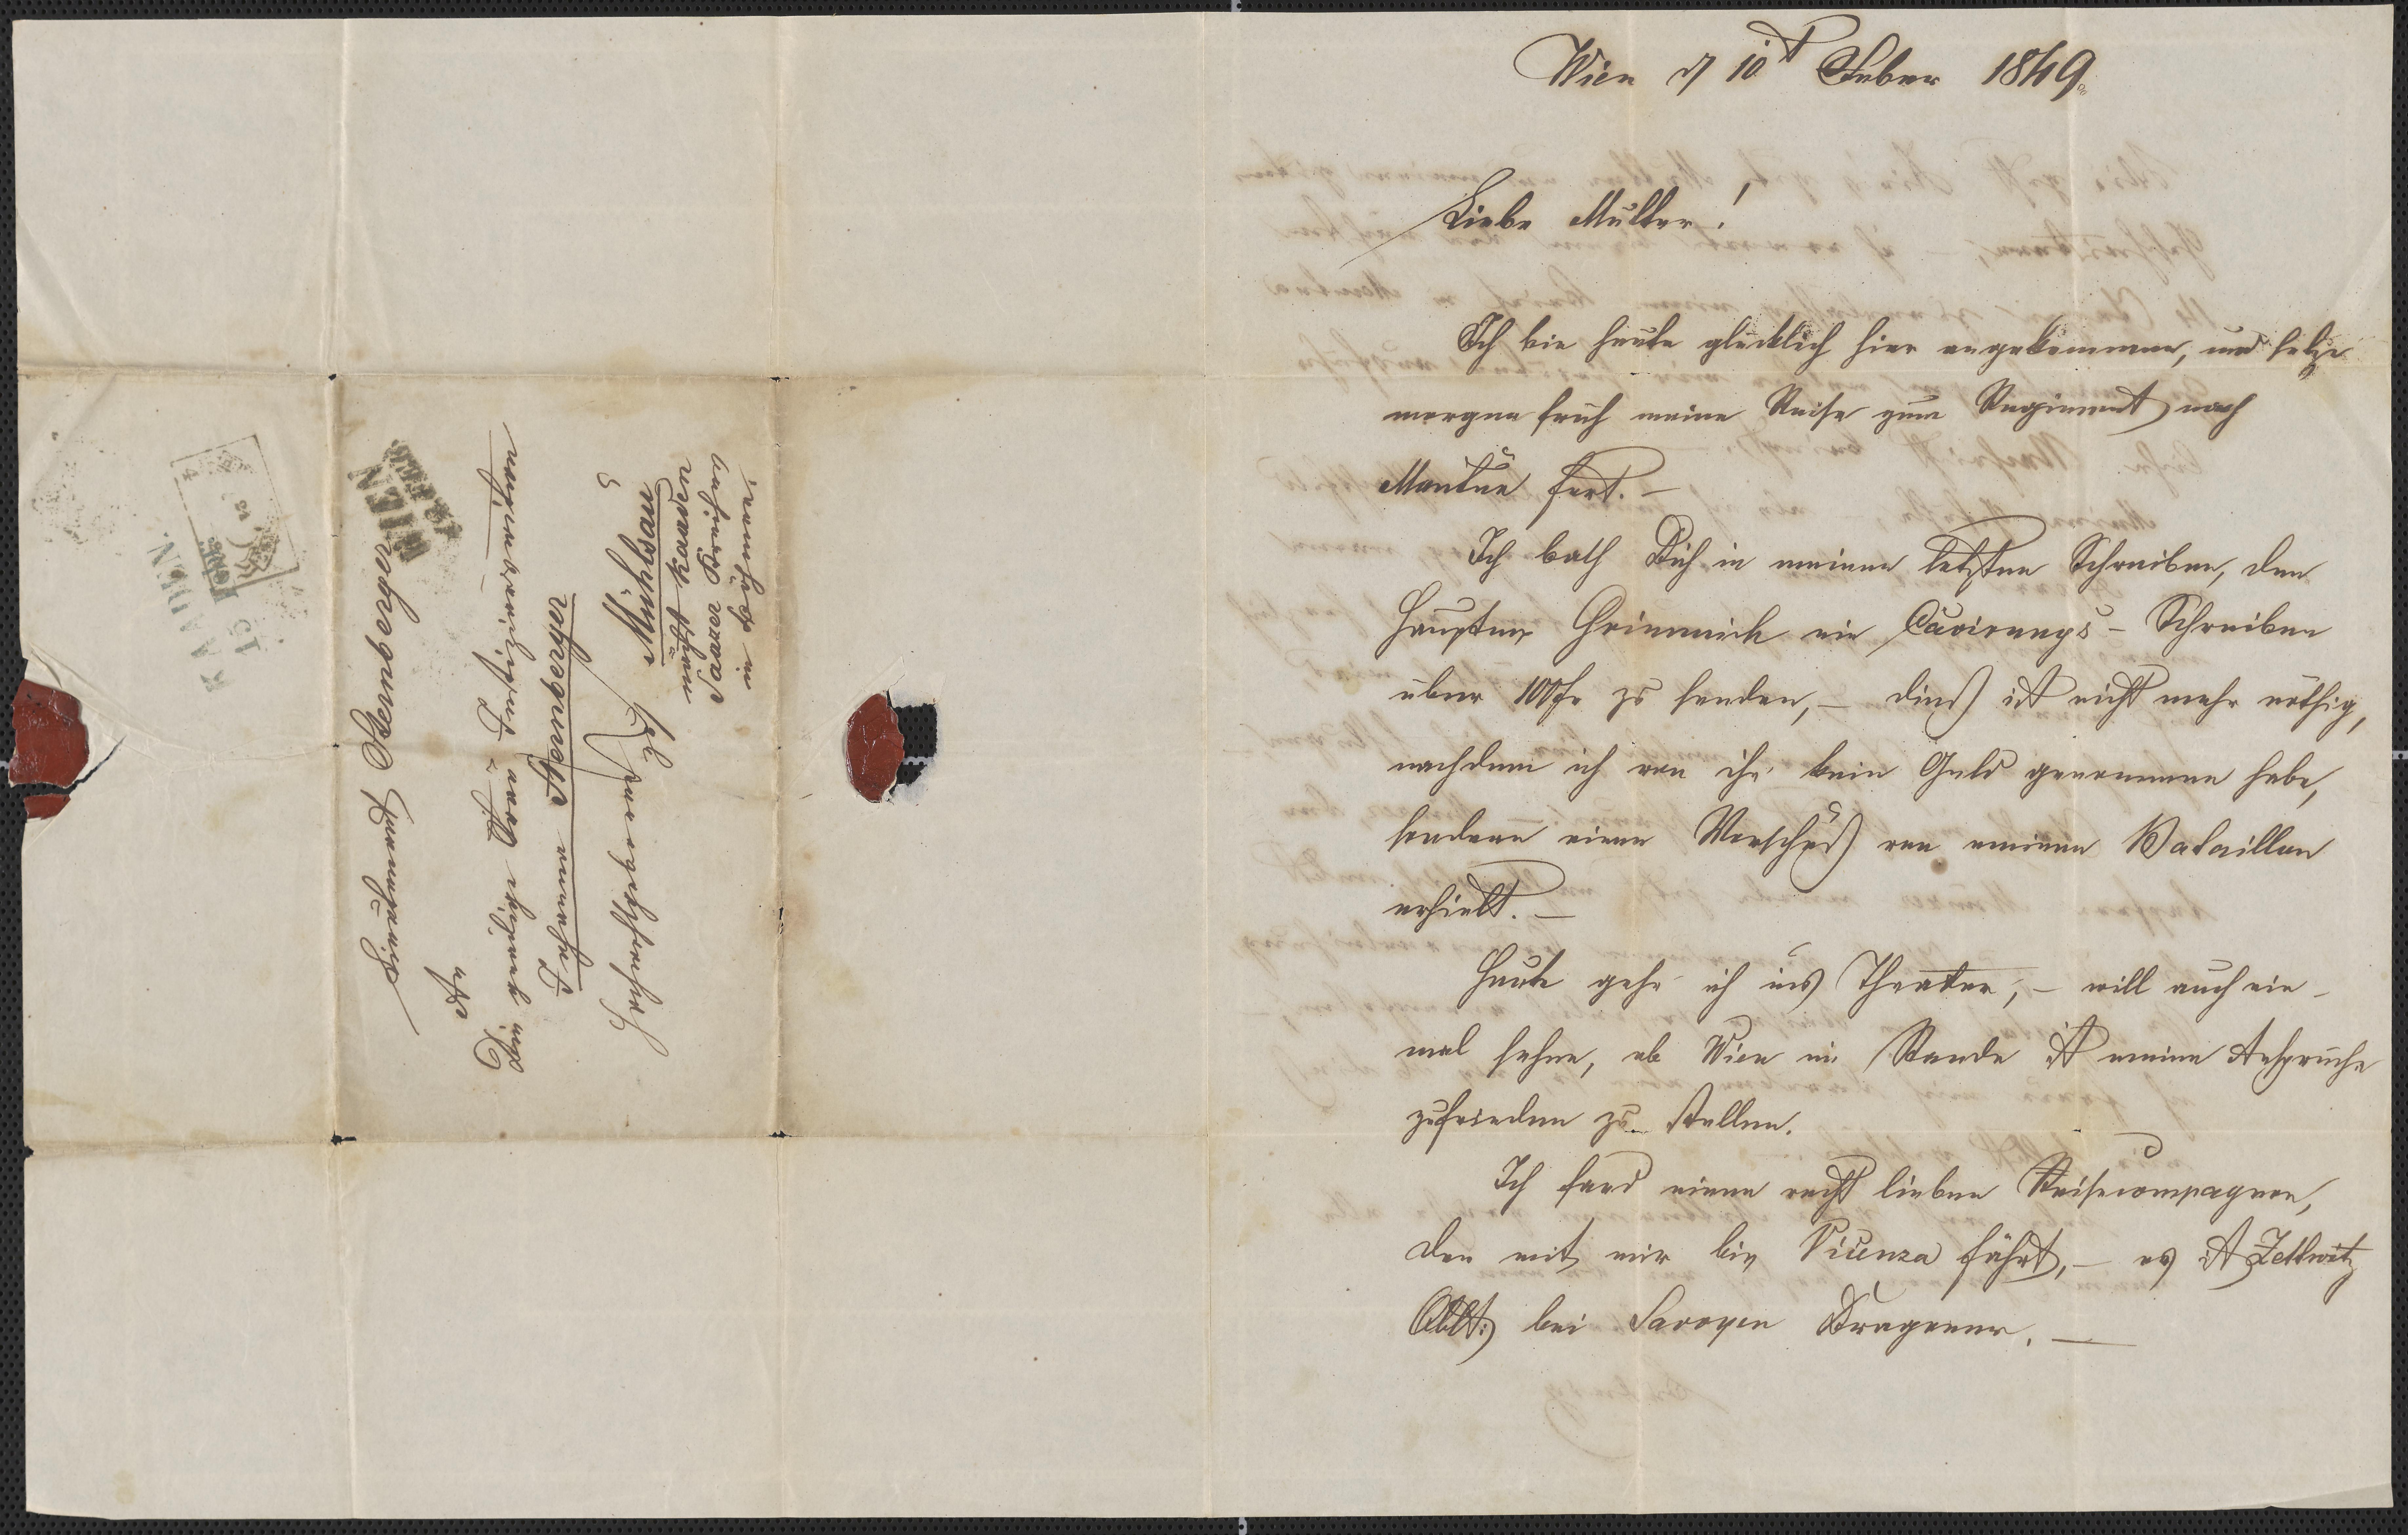 Wien d 10t Feber 1849.
Liebe Mutter!
Ich bin heute glücklich hier angekommen, und setze
morgen früh meine Reise zum Regiment nach
Mantua fort. —
Ich bath Dich in meinem letzten Schreiben, dem
Hauptm Grimmich ein Cavirungs-Schreiben
über 100 fr zu senden, — dieß ist nicht mehr nöthig,
nachdem ich von ihr kein Geld genommen habe,
sondern einen Vorschuß von meinem Bataillon
erhielt. —
Heute gehe ich ins Theater, — will auch ein-
mal sehen, ob Wien im Stande ist meine Ansprüche
zufrieden zu stellen.
Ich fand einen recht lieben Reisecompagnon,
der mit mir bis Vicenza fährt, — es ist Zettwitz
Oblt: bei Savoyen Dragoner. —
WIEN
Hochwohlgeboren
Sternberger
Mühlsau
nächst Kaaden
Saazer Kreises
in Böhmen
KAADEN
15